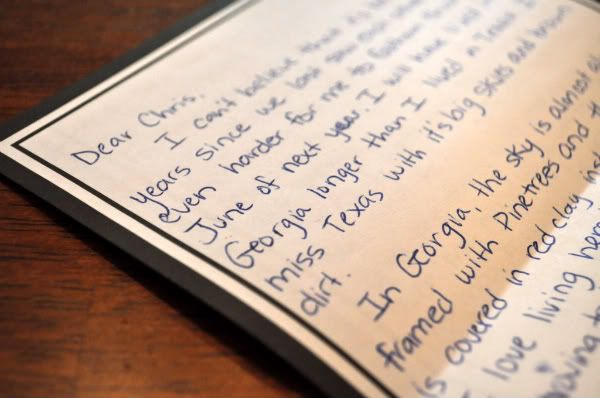 Dear Chris,
I can't believe that it's been
years since we last saw each other
even harder for me to fathom
June of next year. I will have lived in
Georgia longer than I lived in Texas. I
miss Texas with it's big skies and brown
dirt.
In Georgia, the sky is almost
framed with Pinetrees and
is covered in red clay
love living